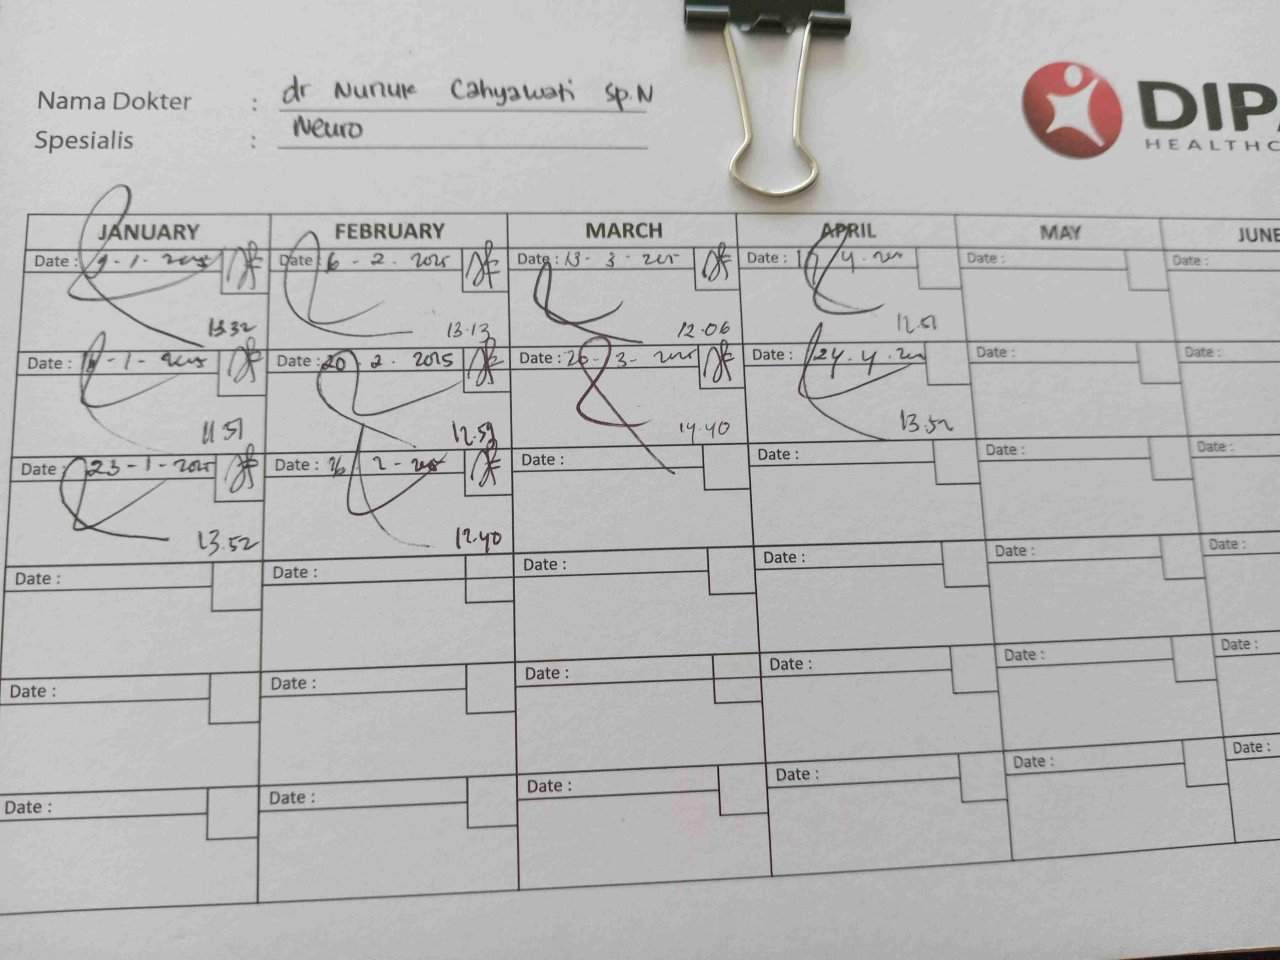 Nama Dokter : dr Nunuk Cahyawati Sp.N
Spesialis : Neuro
HEALTHC
JANUARY FEBRUARY MARCH APRIL MAY JUNE
Date : 9-1-2025 Date : 6-2-2025 Date : 13-3-2025 Date : 4-2025 Date : Date :
13.32 13.13 12.06 12.51
Date : -1-2025 Date : 20-2-2025 Date : 20-3-2025 Date : 24.4.2025 Date : Date :
11.51 12.59 14.40 13.52
Date : 23-1-2025 Date : 26-2-2025 Date : Date : Date : Date :
13.52 12.40
Date : Date : Date : Date : Date : Date :
Date : Date : Date : Date : Date : Date :
Date : Date : Date : Date : Date : Date :